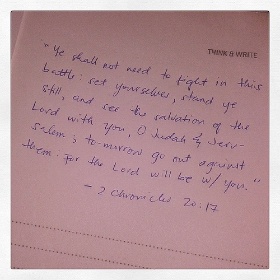 THINK & WRITE
"Ye shall not need to fight in this
battle: set yourselves, stand ye
still, and see the salvation of the
Lord with you, O Judah & Jeru-
salem; to-morrow go out against
them: for the Lord will be w/ you."
- 2 Chronicles 20:17